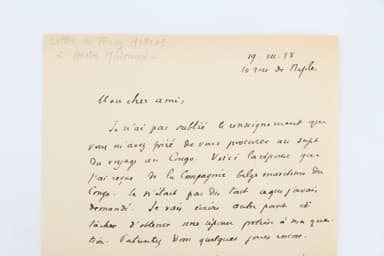 Lettre de
à André Malraux
19. III. 28
10 rue de Naples
Mon cher ami,
Je n'ai pas oublié le renseignement que
vous m'avez prié de vous procurer au sujet
du voyage au Congo. Voici la réponse que
j'ai reçue de la Compagnie belge maritime du
Congo. Ce n'était pas du tout ce que j'avais
demandé. Je vais écrire autre part et
tâcher d'obtenir une réponse précise à ma ques-
tion. Patientez donc quelques jours encore.